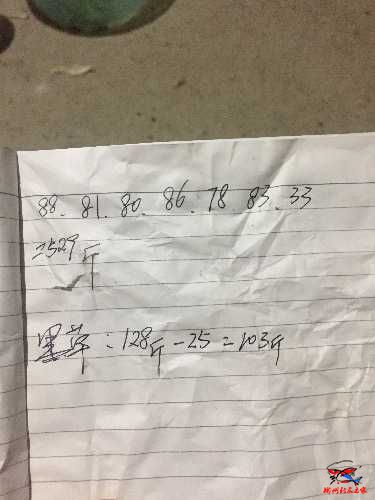 88. 81. 80. 86. 78. 83. 33
=529斤
黑草:128斤-25=103斤